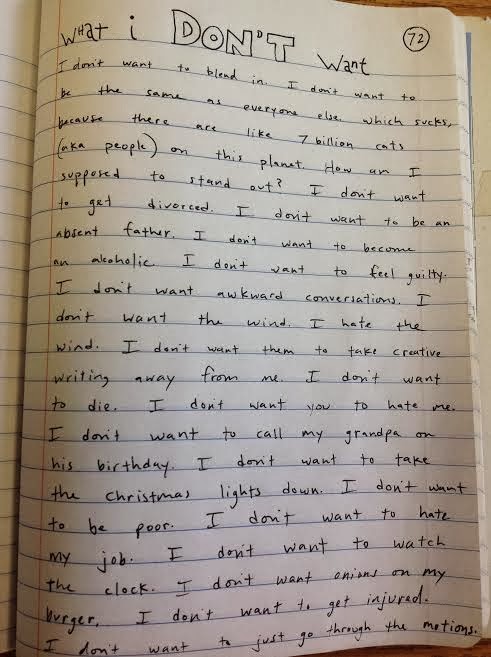 What i DON'T Want
72
I don't want to blend in. I don't want to
be the same as everyone else which sucks,
because there are like 7 billion cats
(aka people) on this planet. How am I
supposed to stand out? I don't want
to get divorced. I don't want to be an
absent father. I don't want to become
an akoholic. I don't want to feel guilty.
I don't want awkward conversations. I
don't want the wind. I hate the
wind. I don't want them to take creative
writing away from me. I don't want
to die. I don't want you to hate me.
I don't want to call my grandpa on
his birthday. I don't want to take
the christmas lights down. I don't want
to be poor. I don't want to hate
my job. I don't want to watch
the clock. I don't want onions on my
burger. I don't want to get injured.
I don't want to just go through the motions.